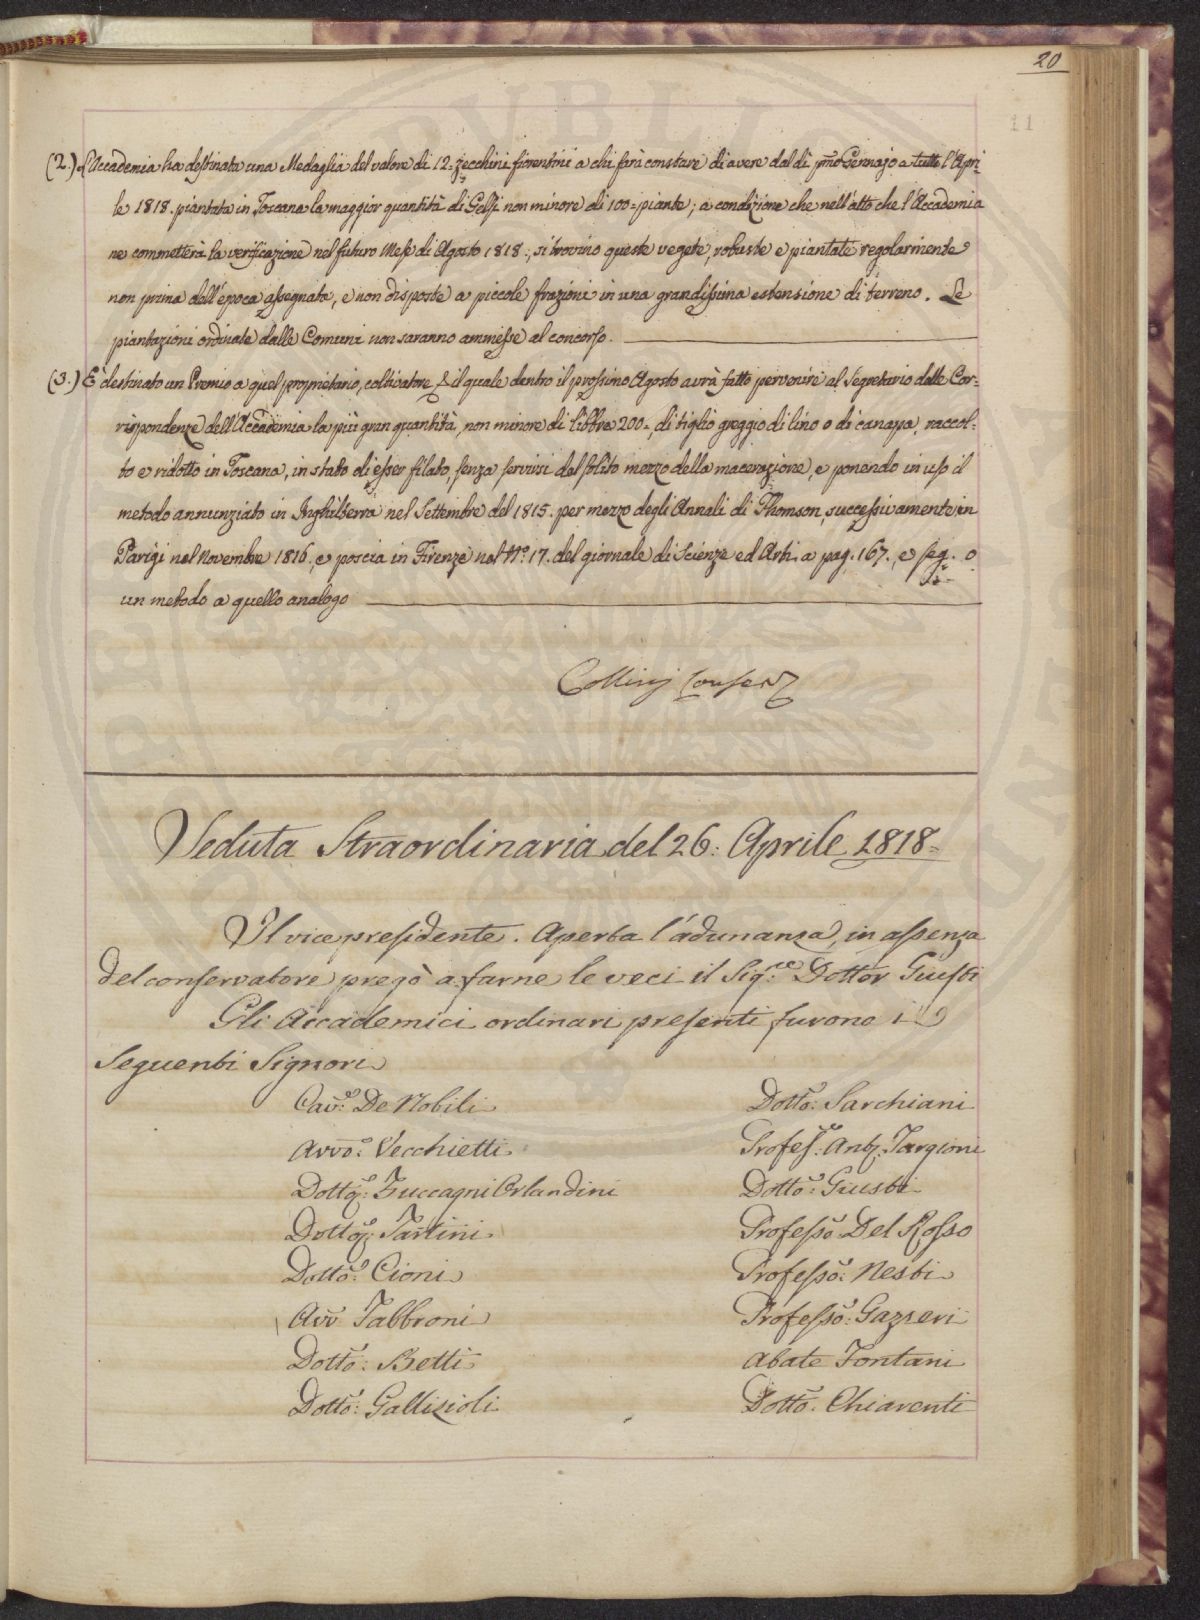 20
21
(2.) L'Accademia ha destinata una Medaglia del valore di 12= zecchini fiorentini a chi farà constare di avere dal dì pmo Gennajo a tutto l'Apri-
le 1818. piantata in Toscana la maggior quantità di Gelsi non minore di 100= piante; a condizione che nell'atto che l'Accademia
ne commetterà la verificazione nel futuro Mese di Agosto 1818., si trovino queste vegete, robuste e piantate regolarmente
non prima dell'epoca assegnata, e non disposte a piccole frazioni in una grandissima estensione di terreno. Le
piantazioni ordinate dalle Comuni non saranno ammesse al concorso.
(3.) È destinato un Premio a quel proprietario, coltivatore, & il quale dentro il prossimo Agosto avrà fatto pervenire al Segretario delle Cor-
rispondenze dell'Accademia la più gran quantità, non minore di libbre 200=, di tiglio greggio di lino o di canapa, raccol-
to e ridotto in Toscana, in stato di esser filato, senza servirsi del solito mezzo della macerazione, e ponendo in uso il
metodo annunziato in Inghilterra nel Settembre del 1815. per mezzo degli Annali di Thomson, successivamente in
Parigi nel Novembre 1816., e poscia in Firenze nel N.o 17. del giornale di Scienze ed Arti a pag. 167., e seg. o
un metodo a quello analogo
Collinj
Seduta Straordinaria del 26. Aprile 1818=
Il vice presidente. Aperta l'adunanza, in assenza
del conservatore pregò a farne le veci il Sig.re Dottor Giusti
Gli Accademici ordinari presenti furono i
Seguenti Signori
Cav.e De Nobili
Dotto: Sarchiani
Avvo. Vecchietti
Profes.e Ant. Targioni
Dotto: Zuccagni Orlandini
Dotto: Giusti
Dotto: Tartini
Professo: Del Rosso
Dotto: Cioni
Professo: Nesti
Avv Fabbroni
Professo: Gazzeri
Dotto: Betti
Abate Fontani
Dotto: Gallizioli
Dotto: Chiarenti